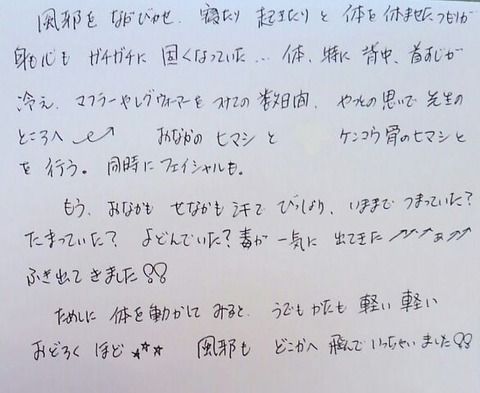 風邪を ながびかせ、寝たり 起きたり と 体を 休ませたつもりが
身も心も ガチガチに 固くなっていた… 体、特に 背中、首すじが
冷え、マフラーやレグウォーマーをつけての 数日間、やっとの思いで 先生の
ところへ おなかの ヒマシ と ケンコウ骨のヒマシ と
を 行う。同時に フェイシャルも。
もう、おなかも せなかも 汗で びっしょり、いままで つまっていた?
たまっていた? よどんでいた? 毒が 一気に 出てきた
ふき出て きました!!
ためしに 体を動かして みると、うでも かたも 軽い 軽い
おどろく ほど ☆☆☆ 風邪も どこかへ 飛んで いっちゃいました!!